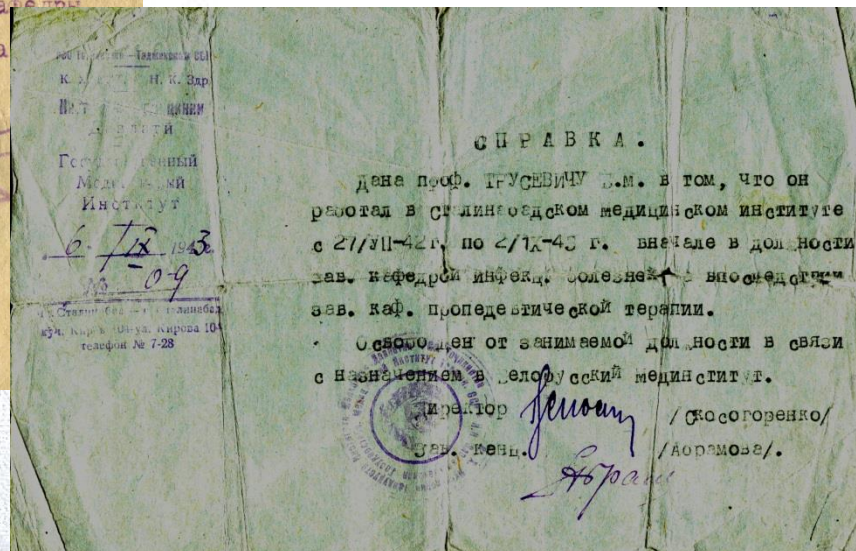 федры
а
Таджикская ССР
Н. К. Здр.
Государственный
Медицинский
Институт
6 / IX 1943
№ 09
ул. Кирова 10
телефон № 7-28
СПРАВКА.
Дана проф. ТРУСЕВИЧУ Б.М. в том, что он
работал в Сталинбадском медицинском институте
с 27/VII-42 г. по 2/IX-43 г. вначале в должности
зав. кафедрой инфекц. болезней а впоследствии
зав. каф. пропедевтической терапии.
Освобожден от занимаемой должности в связи
с назначением в Белорусский мединститут.
Директор /Скосогоренко/
Зав. канц. /Абрамова/.